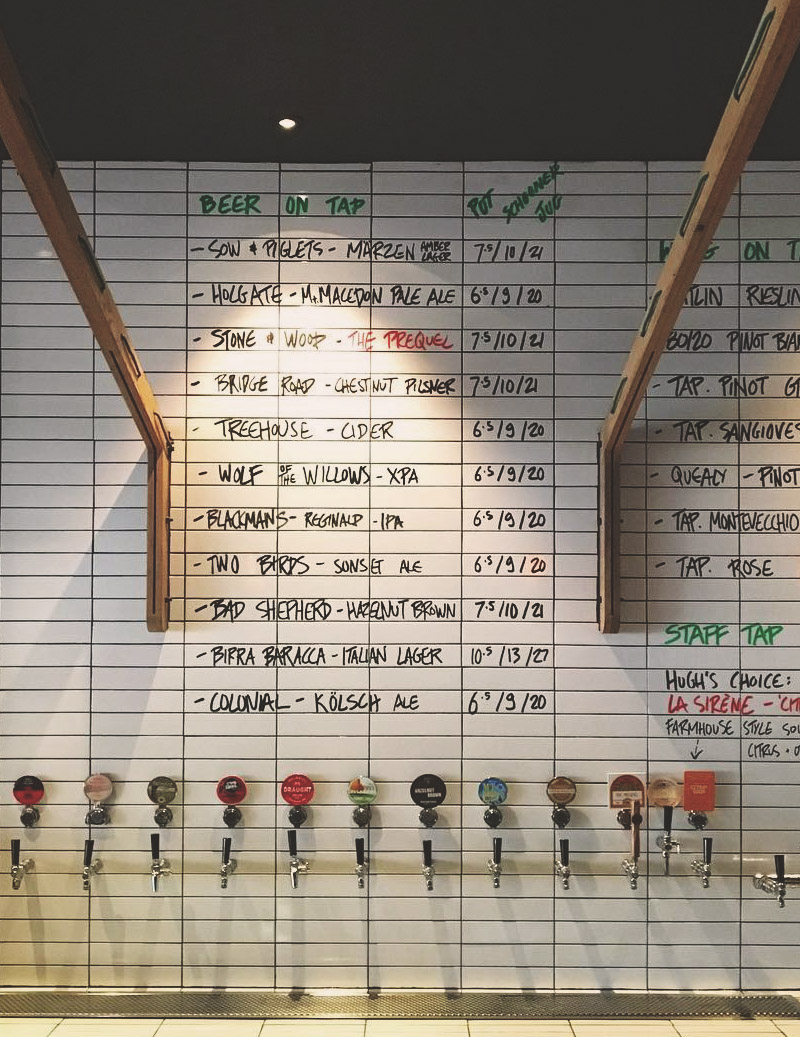 BEER ON TAP POT SCHOONER JUG
- SOW & PIGLETS - MARZEN AMBER LAGER 7.5/10/21
- HOLGATE - Mt MACEDON PALE ALE 6.5/9/20
- STONE & WOOD - THE PREQUEL 7.5/10/21
- BRIDGE ROAD - CHESTNUT PILSNER 7.5/10/21
- TREEHOUSE - CIDER 6.5/9/20
- WOLF OF THE WILLOWS - XPA 6.5/9/20
- BLACKMANS - REGINALD - IPA 6.5/9/20
- TWO BIRDS - SUNSET ALE 6.5/9/20
- BAD SHEPHERD - HAZELNUT BROWN 7.5/10/21
- BIRRA BARACCA - ITALIAN LAGER 10.5/13/27
- COLONIAL - KÖLSCH ALE 6.5/9/20
ON TA
TLIN RIESLIN
80/20 PINOT BIAN
- TAP. PINOT G
- TAP. SANGIOVES
- QUEALY - PINOT
- TAP. MONTEVECCHIO
- TAP. ROSE
STAFF TAP
HUGH'S CHOICE:
LA SIRÈNE - 'CIT
FARMHOUSE STYLE SOU
CITRUS
DRAUGHT
HAZELNUT BROWN